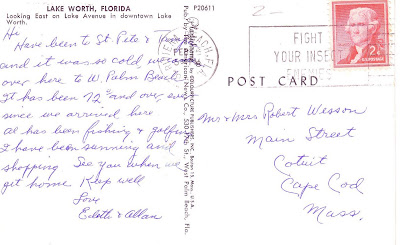 LAKE WORTH, FLORIDA
Looking East on Lake Avenue in downtown Lake
Worth.
P20611
Hi,
Have been to St. Pete &
and it was so cold we
over here to W. Palm Beach
It has been 72° and over, ever
since we arrived here
Al has been fishing & golfing
I have been sunning and
shopping See you when we
get home Keep well
Love
Edith & Allan
2-
FIGHT
YOUR INSE
2¢
POST CARD
Mr & Mrs Robert Wesson
Main Street
Cotuit
Cape Cod
Mass.